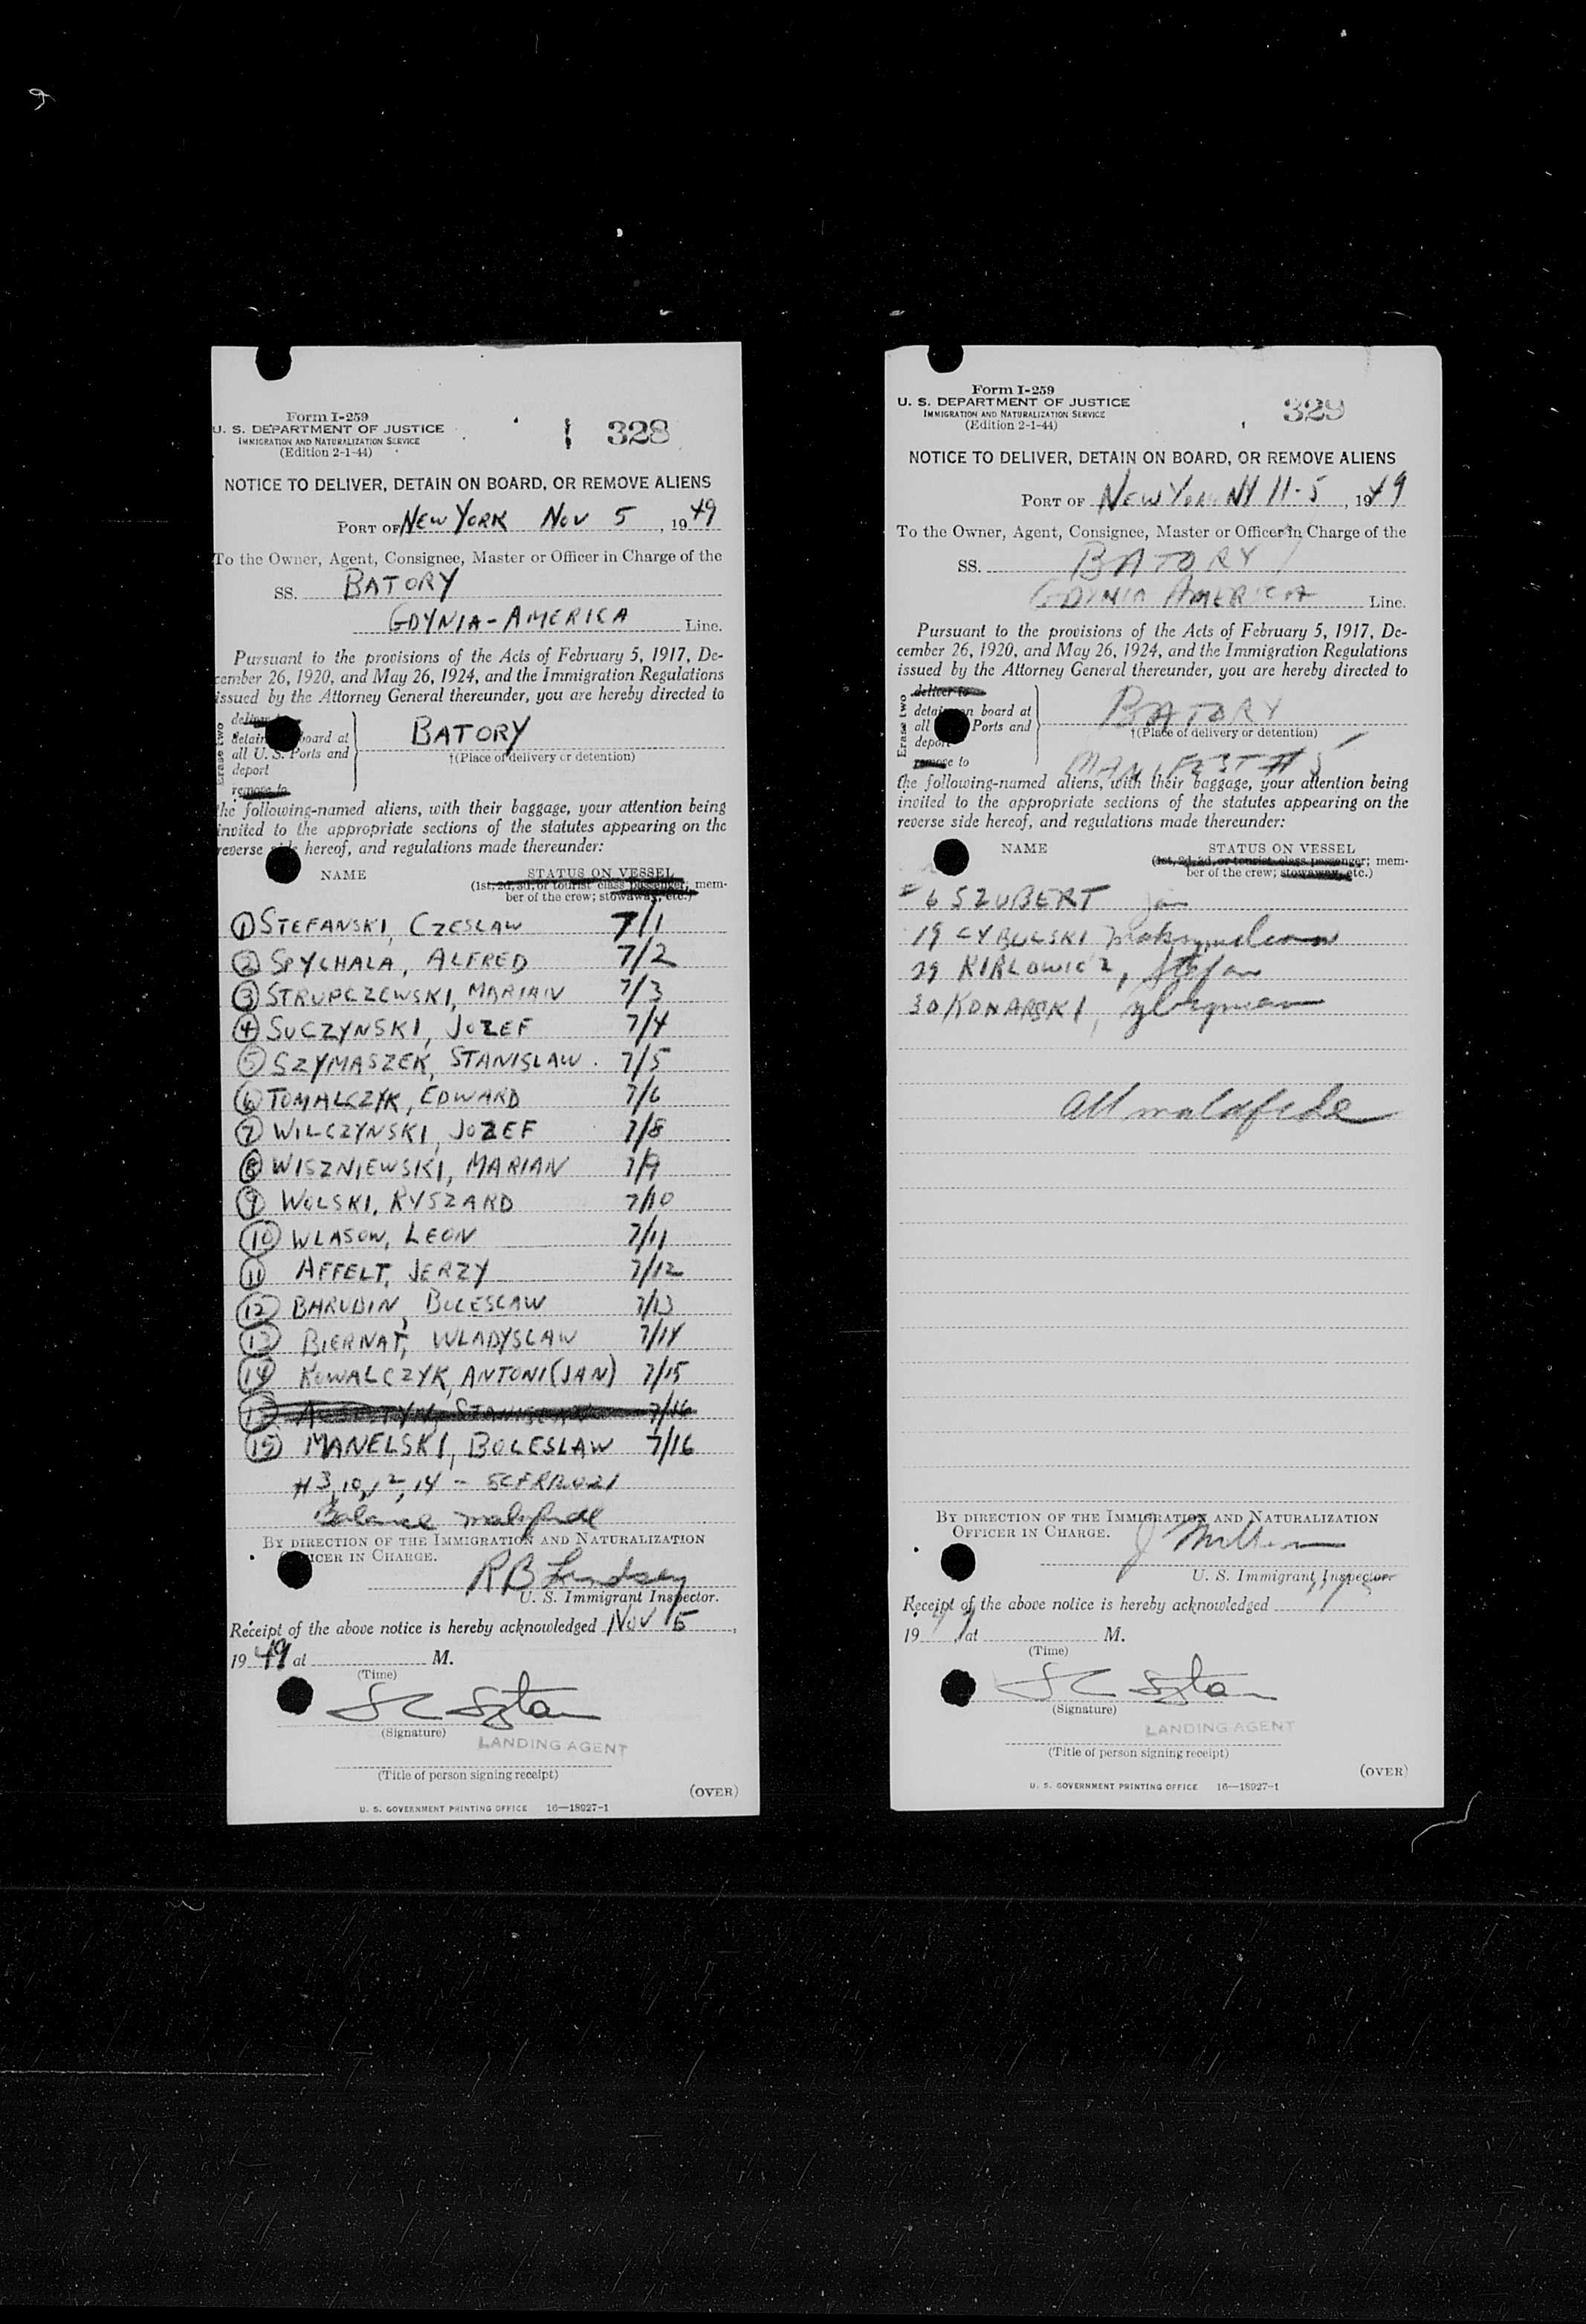 Form I-259
U. S. DEPARTMENT OF JUSTICE
IMMIGRATION AND NATURALIZATION SERVICE
(Edition 2-1-44)
328
NOTICE TO DELIVER, DETAIN ON BOARD, OR REMOVE ALIENS
PORT OF NEW YORK NOV 5, 1949
To the Owner, Agent, Consignee, Master or Officer in Charge of the
SS. BATORY
GDYNIA-AMERICA Line.
Pursuant to the provisions of the Acts of February 5, 1917, De-
cember 26, 1920, and May 26, 1924, and the Immigration Regulations
issued by the Attorney General thereunder, you are hereby directed to
Erase two
deliver
detain board at
all U. S. Ports and
deport
remove to
BATORY
†(Place of delivery or detention)
the following-named aliens, with their baggage, your attention being
invited to the appropriate sections of the statutes appearing on the
reverse side hereof, and regulations made thereunder:
NAME STATUS ON VESSEL
(1st, 2d, 3d, or tourist class passenger; mem-
ber of the crew; stowaway, etc.)
1 STEFANSKI, CZESLAW 7/1
2 SPYCHALA, ALFRED 7/2
3 STRUPCZEWSKI, MARIAN 7/3
4 SUCZYNSKI, JOZEF 7/4
5 SZYMASZEK, STANISLAW. 7/5
6 TOMALCZYK, EDWARD 7/6
7 WILCZYNSKI, JOZEF 7/8
8 WISZNIEWSKI, MARIAN 7/9
9 WOLSKI, RYSZARD 7/10
10 WLASOW, LEON 7/11
11 AFFELT, JERZY 7/12
12 BARUDIN, BOLESLAW 7/13
13 BIERNAT, WLADYSLAW 7/14
14 KOWALCZYK, ANTONI (JAN) 7/15
7/16
15 MANELSKI, BOLESLAW 7/16
#3, 10, 12, 14 -
Balance malafide
BY DIRECTION OF THE IMMIGRATION AND NATURALIZATION
OFFICER IN CHARGE.
R B Lindsey
U. S. Immigrant Inspector.
Receipt of the above notice is hereby acknowledged NOV 5,
1949 at M.
(Time)
(Signature)
LANDING AGENT
(Title of person signing receipt)
(OVER)
U. S. GOVERNMENT PRINTING OFFICE 16—18927-1
Form I-259
U. S. DEPARTMENT OF JUSTICE
IMMIGRATION AND NATURALIZATION SERVICE
(Edition 2-1-44)
329
NOTICE TO DELIVER, DETAIN ON BOARD, OR REMOVE ALIENS
PORT OF NEW YORK NY 11-5, 1949
To the Owner, Agent, Consignee, Master or Officer in Charge of the
SS. BATORY
GDYNIA AMERICA Line.
Pursuant to the provisions of the Acts of February 5, 1917, De-
cember 26, 1920, and May 26, 1924, and the Immigration Regulations
issued by the Attorney General thereunder, you are hereby directed to
Erase two
deliver to
detain on board at
all Ports and
deport
remove to
BATORY
†(Place of delivery or detention)
MANIFEST #5
the following-named aliens, with their baggage, your attention being
invited to the appropriate sections of the statutes appearing on the
reverse side hereof, and regulations made thereunder:
NAME STATUS ON VESSEL
(1st, 2d, 3d, or tourist class passenger; mem-
ber of the crew; stowaway, etc.)
#6 SZUBERT Jan
19 CYBULSKI
29 KIRLOWICZ, Stefan
30 KONARSKI, Zbigniew
all malafide
BY DIRECTION OF THE IMMIGRATION AND NATURALIZATION
OFFICER IN CHARGE.
U. S. Immigrant Inspector.
Receipt of the above notice is hereby acknowledged
19 , at M.
(Time)
(Signature)
LANDING AGENT
(Title of person signing receipt)
(OVER)
U. S. GOVERNMENT PRINTING OFFICE 16—18927-1